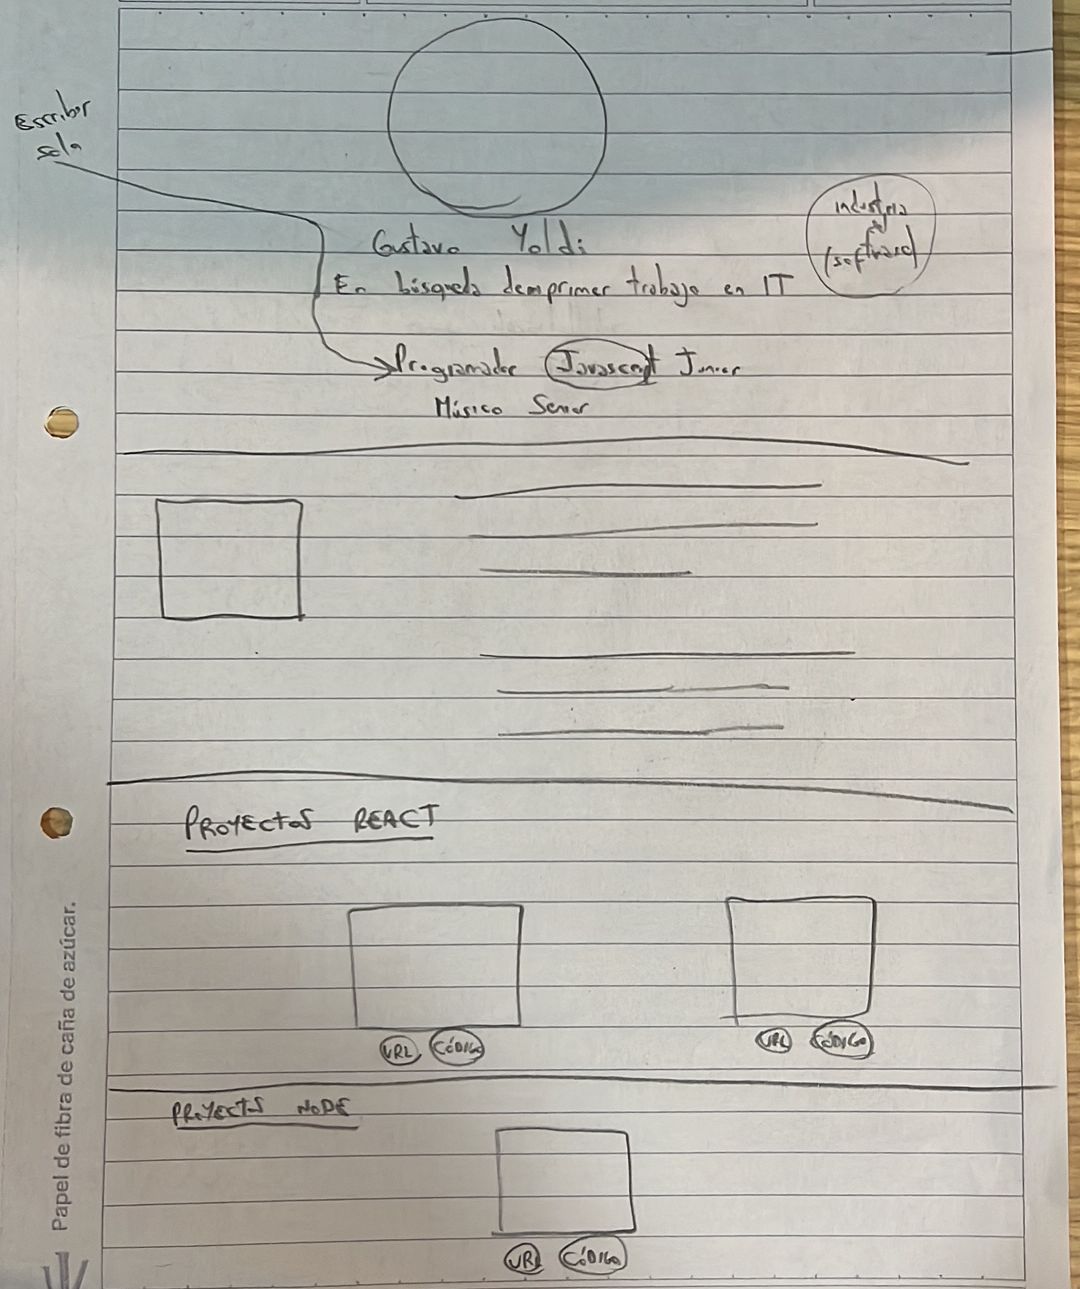 Escribir
sola
industria
(software)
Gustavo Yoldi
En búsqueda demprimer trabajo en IT
Programador Javascript Junior
Músico Senior
PROYECTOS REACT
URL CÓDIGO
URL CÓDIGO
PROYECTOS NODE
URL CÓDIGO
Papel de fibra de caña de azúcar.